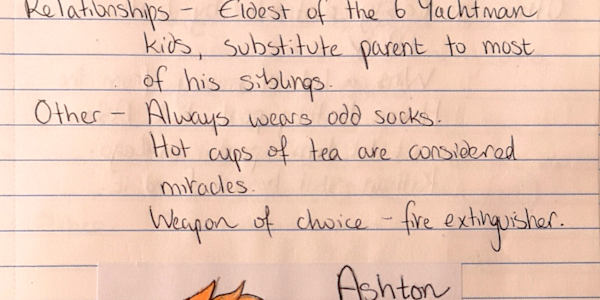 Relationships - Eldest of the 6 Yachtman
kids, substitute parent to most
of his siblings.
Other - Always wears odd socks.
Hot cups of tea are considered
miracles.
Weapon of choice - fire extinguisher.
Ashton